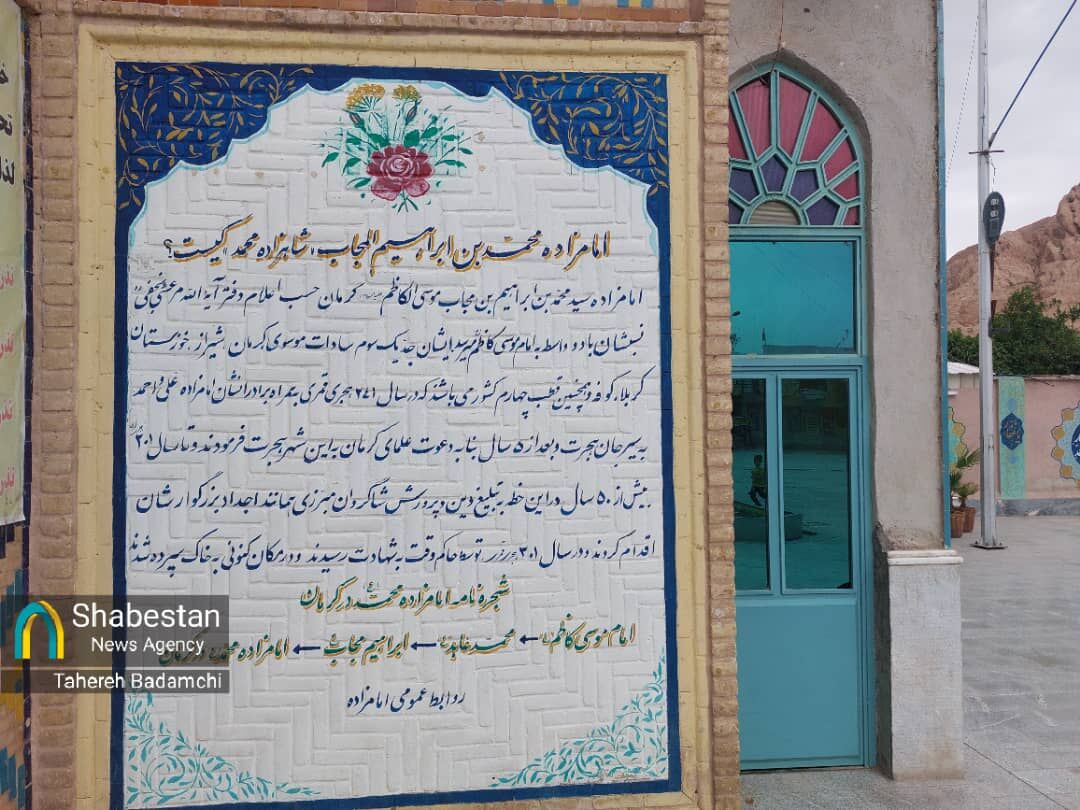 امامزاده محمد بن ابراهیم المجاب، شاهزاده محمد کیست؟
امامزاده سید محمد بن ابراهیم بن مجاب موسی الکاظم کرمان حسب اعلام دفتر آیة الله مرعشی نجفی
نسبشان با دو واسطه به امام موسی کاظم میرسد ایشان جد یک سوم سادات موسوی کرمان، شیراز، خوزستان
کربلا، کوفه و همچنین قطب چهارم کشور می باشد که در سال ۲۷۱ هجری قمری بهمراه برادرانشان امامزاده علی و احمد
به سیرجان هجرت و بعد از ۵ سال بنا به دعوت علمای کرمان به این شهر هجرت فرمودند و تا سال ۳۰۱
بیش از ۵۰ سال در این خطه به تبلیغ دین و پرورش شاگردان مبرزی همانند اجداد بزرگوارشان
اقدام کردند و در سال ۳۰۱ توسط حاکم وقت به شهادت رسیدند و در مکان کنونی به خاک سپرده شدند
شجره نامه امامزاده محمد در کرمان
امام موسی کاظم ← محمد عابد ← ابراهیم مجاب ← امامزاده محمد در کرمان
روابط عمومی امامزاده
Shabestan
News Agency
Tahereh Badamchi